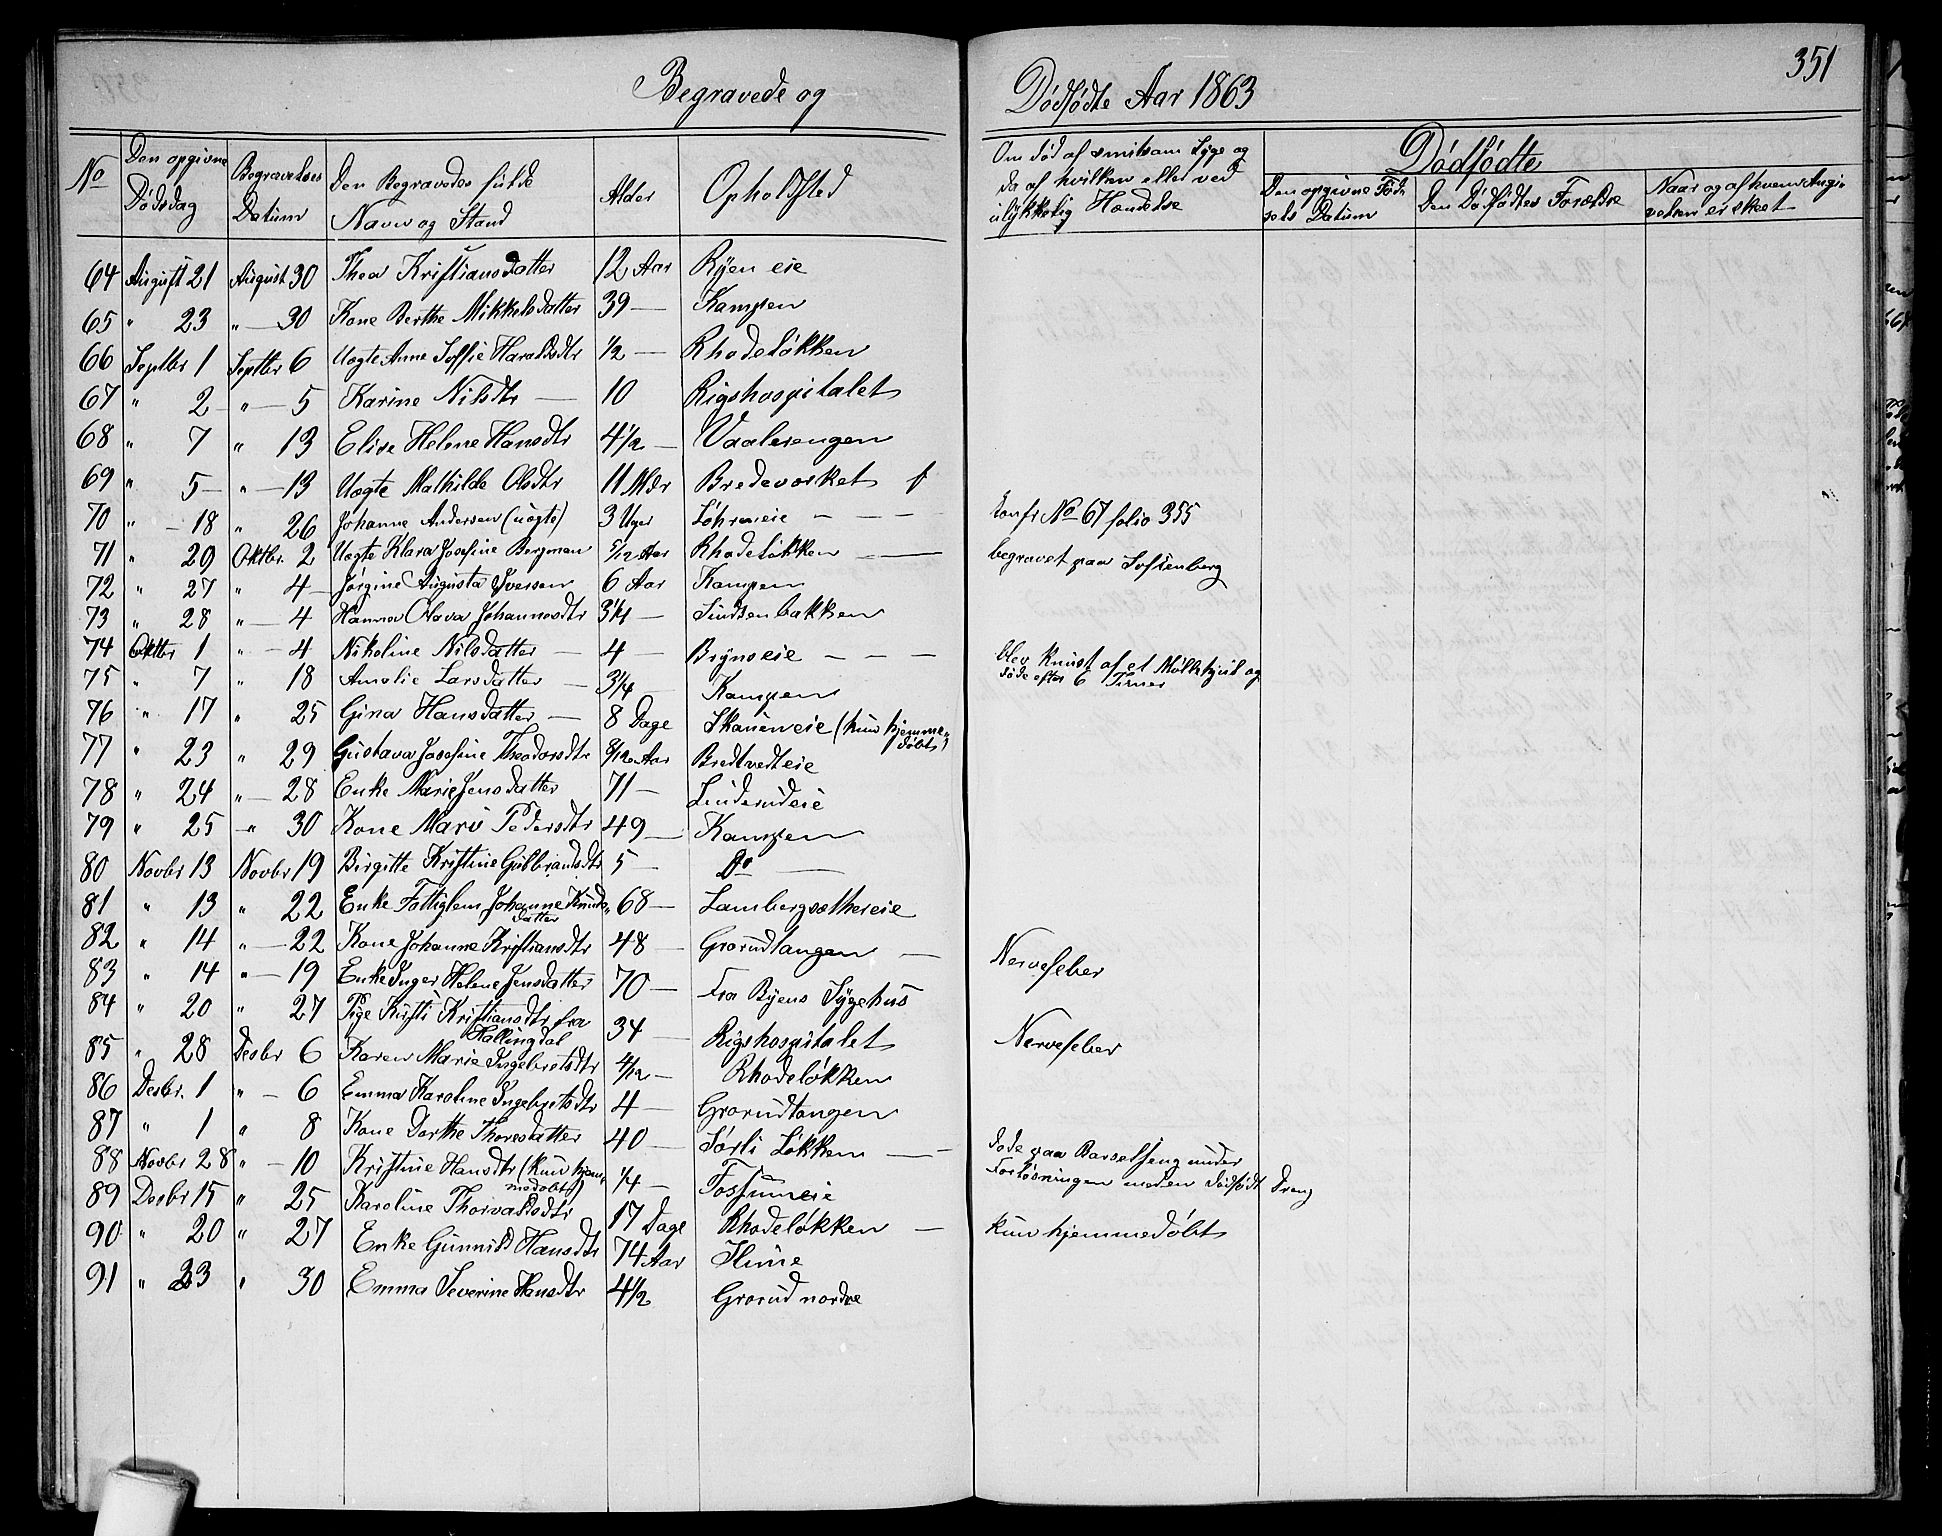 351
Begravede og Dødfødte Aar 1863
No | Den opgivne Dødsdag | Begravelses Datum | Den Begravedes fulde Navn og Stand | Alder | Opholdsted | Om død af smitsom Syge og da af hvilken eller ved ulykkelig Hændelse | Dødfødte | Den opgivne Fødsels Datum | Den Dødfødtes Forældre | Naar og af hvem Angivelsen er skeet
64 August 21 August 30 Thea Kristiansdatter 12 Aar Ryen eie
65 " 23 " — 30 Kone Berthe Mikkelsdatter 39 — Kampen
66 Septbr 1 Septbr 6 Uegte Anne Soffie Haraldsdtr 1/2 — Rhodeløkken
67 " 2 " — 5 Karine Nilsdtr — 10 Rigshospitalet
68 " 7 " 13 Elise Helene Hansdtr 4 1/2 — Vaalerengen
69 " 5 — " — 13 Uegte Mathilde Olsdtr 11 Mdr Bredevolket
70 " — 18 " 26 Johanne Andersen (uegte) 3 Uger Løhreneie — — — Konfr No 67 folio 355
71 " 29 Oktbr. 2 Uegte Klara Josefine Bergman 5/12 Aar Rhodeløkken — — begravet paa Sofienberg
72 " 27 " 4 — Jørgine Augusta Iversen 6 Aar Kampen
73 " 28 " — 4 Hanna Olava Johannesdtr 3 1/4 — Sindsenbakken
74 Oktbr 1 " — 4 Nikoline Nilsdatter — 4 — Brynseie — — — blev knust af et Møllehjul og døde efter 6 Timer
75 " 7 " 18 Amalie Larsdatter — 3 1/4 — Kampen
76 " 17 " 25 Gina Hansdatter — 8 Dage Skaneneie (kun hjemmedøbt)
77 " 23 " 29 Gustava Josefine Theodorsdtr 8/12 Aar Bredtvedteie
78 " 24 " — 28 Enke Marie Jensdatter 71 — Linderudeie
79 " 25 — " 30 Kone Mari Pedersdtr 49 — Kampen
80 Novbr 13 Novbr 19 Birgitte Kristine Gulbrandsdtr 5 — Do —
81 " 13 " 22 Enke Fattiglem Johanne Knudsdatter 68 — Lambergsæthereie
82 " 14 " — 22 Kone Johanne Kristiansdtr 48 — Grorudtangen — Nervefeber
83 " 14 " — 19 Enke Inger Helene Jensdatter 70 — Fra Byens Sygehus
84 " 20 " 27 Pige Kirsti Kristiansdtr fra Hallingdal 34 — Rigshospitalet Nervefeber
85 " 28 Desbr 6 Karen Marie Ingebretsdtr 4/12 — Rhodeløkken
86 Desbr. 1 " — 6 Emma Karoline Ingebretsdtr 4 — Grorudtangen
87 " 1 " 8 Kone Dorthe Thoresdatter 40 — Sørli Løkken — — døde paa Barselseng under Forløsningen med en dødfødt Dreng
88 Novbr 28 " — 10 Kristine Hansdtr (kun hjemmedøbt) 1/4 — Fossumeie
89 Desbr 15 " 25 Karoline Thorvaldsdtr 17 Dage Rhodeløkken — kun hjemmedøbt
90 " 20 " 27 Enke Gunnild Hansdtr 74 Aar
91 " 23 " 30 Emma Severine Hansdtr 4 1/2 Grorud nordre